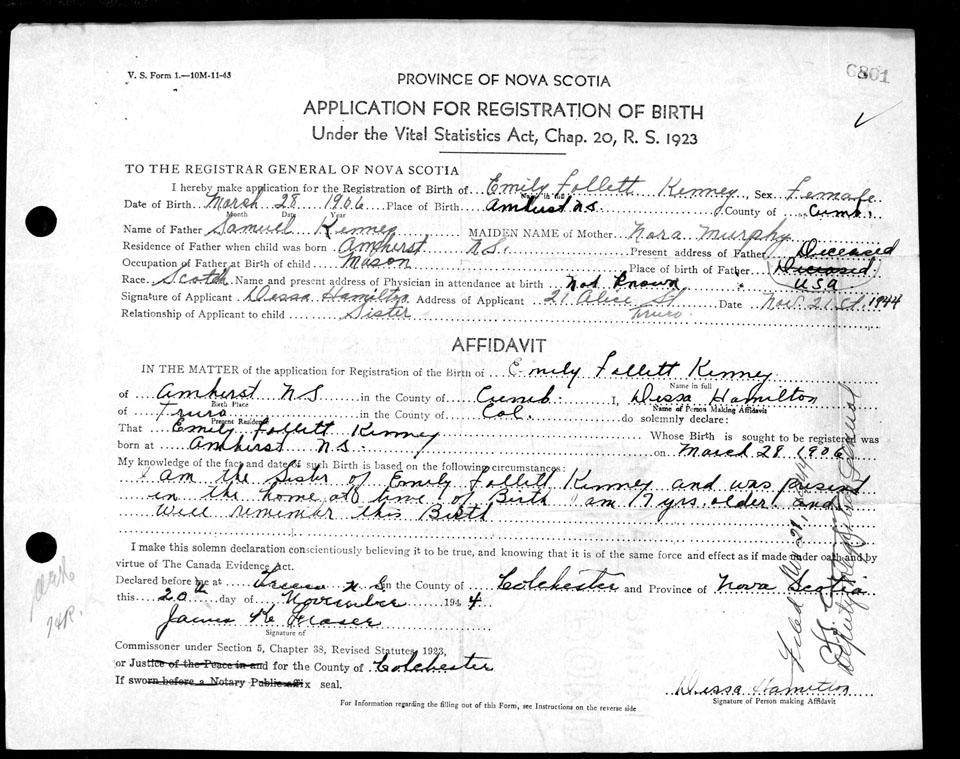 V. S. Form 1.—10M-11-43
6801
PROVINCE OF NOVA SCOTIA
APPLICATION FOR REGISTRATION OF BIRTH
Under the Vital Statistics Act, Chap. 20, R. S. 1923
TO THE REGISTRAR GENERAL OF NOVA SCOTIA
I hereby make application for the Registration of Birth of Emily Follett Kenney, Sex Female
Name in full
Date of Birth March 28 1906 Place of Birth Amherst N.S. County of Cumb.
Month Date Year
Name of Father Samuel Kenney MAIDEN NAME of Mother Nora Murphy
Residence of Father when child was born Amherst N.S. Present address of Father Diceased
Occupation of Father at Birth of child Mason Place of birth of Father Diceased
Race Scotch Name and present address of Physician in attendance at birth Not Known USA
Signature of Applicant Dessa Hamilton Address of Applicant 21 Alice St Date Nov. 21st 1944
Relationship of Applicant to child Sister Truro
AFFIDAVIT
IN THE MATTER of the application for Registration of the Birth of Emily Follett Kenney
Name in full
of Amherst N S in the County of Cumb. I, Dessa Hamilton
Birth Place Name of Person Making Affidavit
of Truro in the County of Col. do solemnly declare:
Present Residence
That Emily Follett Kenney Whose Birth is sought to be registered was
born at Amherst N.S. on March 28 1906
My knowledge of the fact and date of such Birth is based on the following circumstances:
I am the Sister of Emily Follett Kenney and was present
in the home at time of Birth I am 17 yrs. older and
well remember this Birth
I make this solemn declaration conscientiously believing it to be true, and knowing that it is of the same force and effect as if made under oath and by
virtue of The Canada Evidence Act.
Declared before me at Truro N S in the County of Colchester and Province of Nova Scotia
this 20th day of November 1944
James K. Fraser
Signature of
Commissoner under Section 5, Chapter 38, Revised Statutes, 1923,
or Justice of the Peace in and for the County of Colchester
If sworn before a Notary Public affix seal.
Dessa Hamilton
Signature of Person making Affidavit
For Information regarding the filling out of this Form, see Instructions on the reverse side
Filed Nov 21, 1944